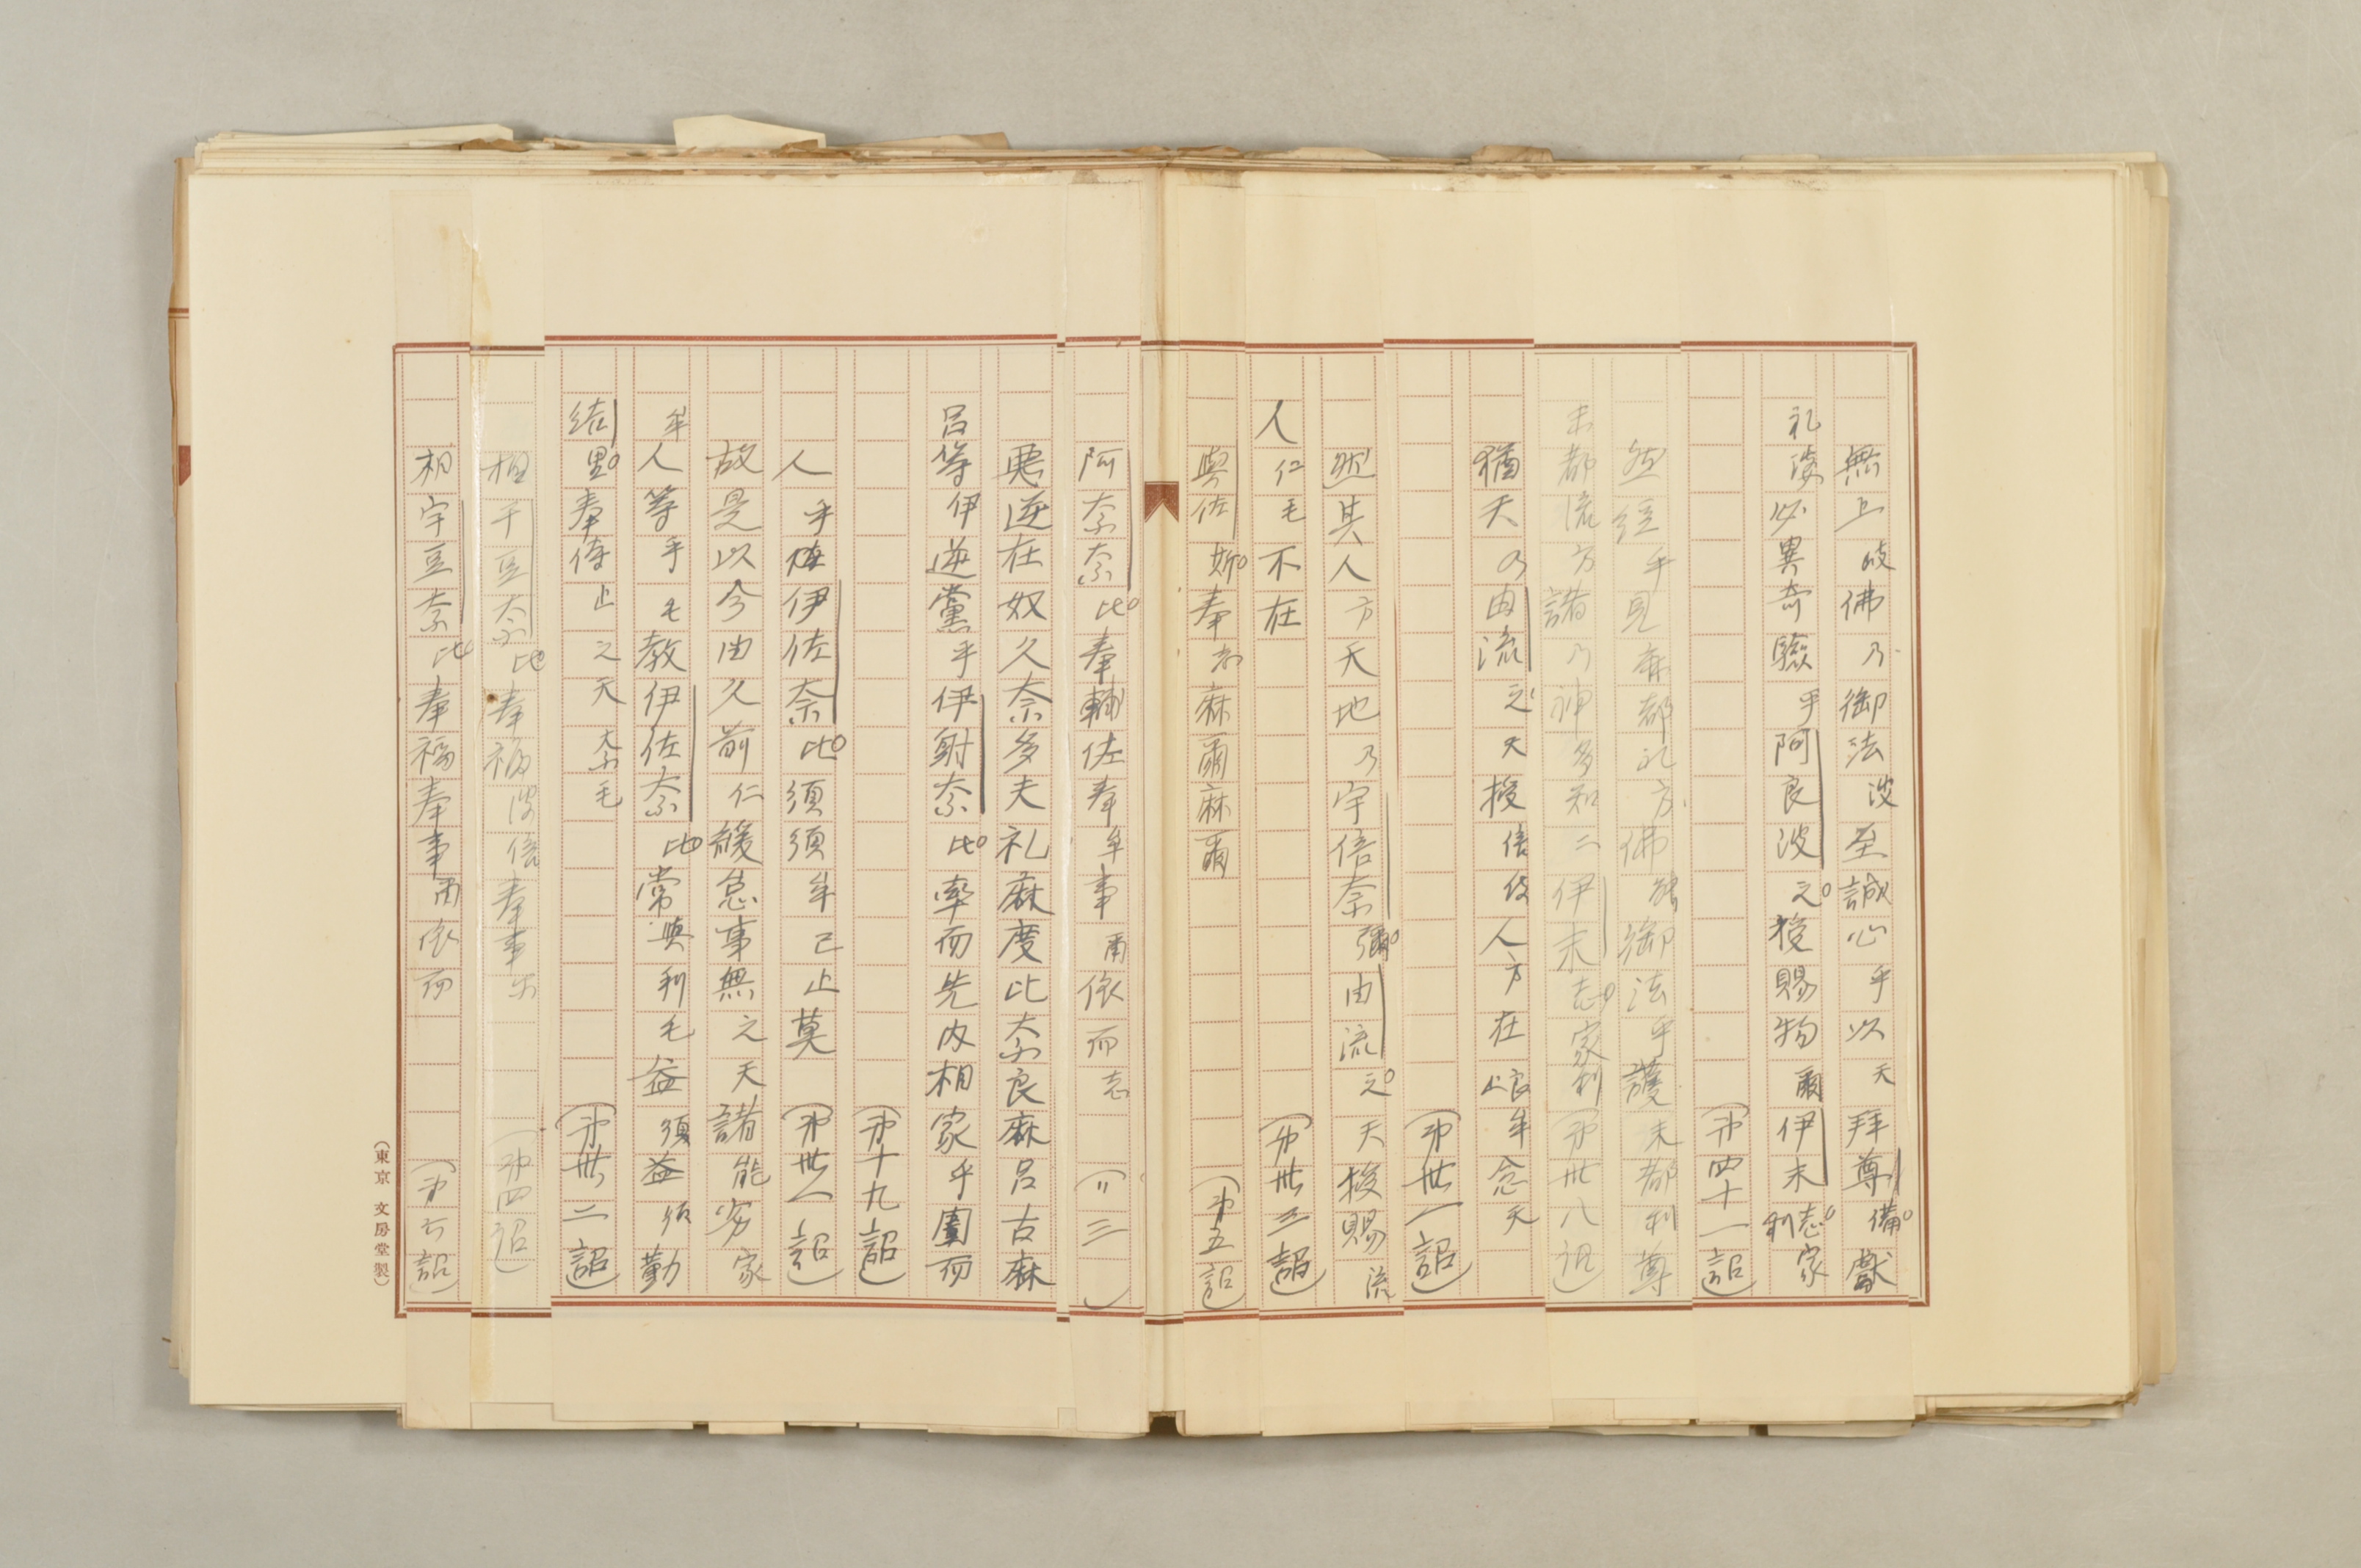 無上岐佛乃御法波至誠心乎以天拜尊備獻
礼波必異奇驗乎阿良波之授賜物爾伊末志家利
（第四十一詔）
然経乎見麻都礼方佛能御法乎護末都利尊
末都流方諸乃神多知二伊末志家利（第卅八詔）
猶天乃由流之天授倍伎人方在良牟止念天
（第卅一詔）
然其人方天地乃宇倍奈彌由流之天授賜流
人仁毛不在（第卅三詔）
輿佐斯奉麻爾麻爾（第五詔）
阿奈奈比奉輔佐奉牟事爾依而志（〃三）
悪逆在奴久奈多夫礼麻度比奈良麻呂古麻
呂等伊逆黨乎伊射奈比率而先内相家乎圍而
（第十九詔）
人乎伊佐奈比須須牟己止莫（第卅一詔）
故是以今由久前仁緩怠事無之天諸能劣家
牟人等乎毛教伊佐奈比常與利毛益須益須勤
結里奉侍止之天奈毛（第卅二詔）
相于豆奈比奉福波倍奉事（第四詔）
相宇豆奈比奉福奉事爾依而（第六詔）
（東京 文房堂製）